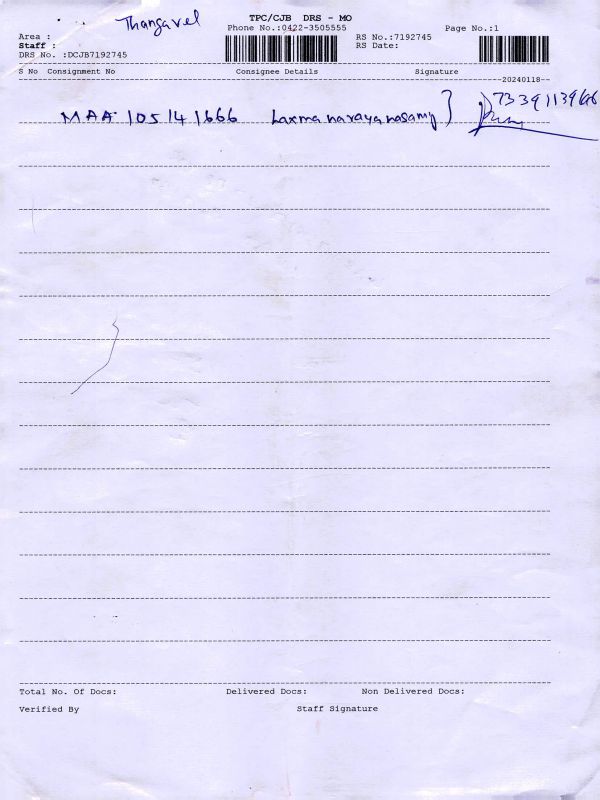 Thangavel
TPC/CJB DRS - MO
Area : Phone No.:0422-3505555 RS No.:7192745 Page No.:1
Staff : RS Date:
DRS No. :DCJB7192745
S No Consignment No Consignee Details Signature
20240118
MAA 105141666 Laxmanarayanasamy } 7339113966
Total No. Of Docs: Delivered Docs: Non Delivered Docs:
Verified By Staff Signature